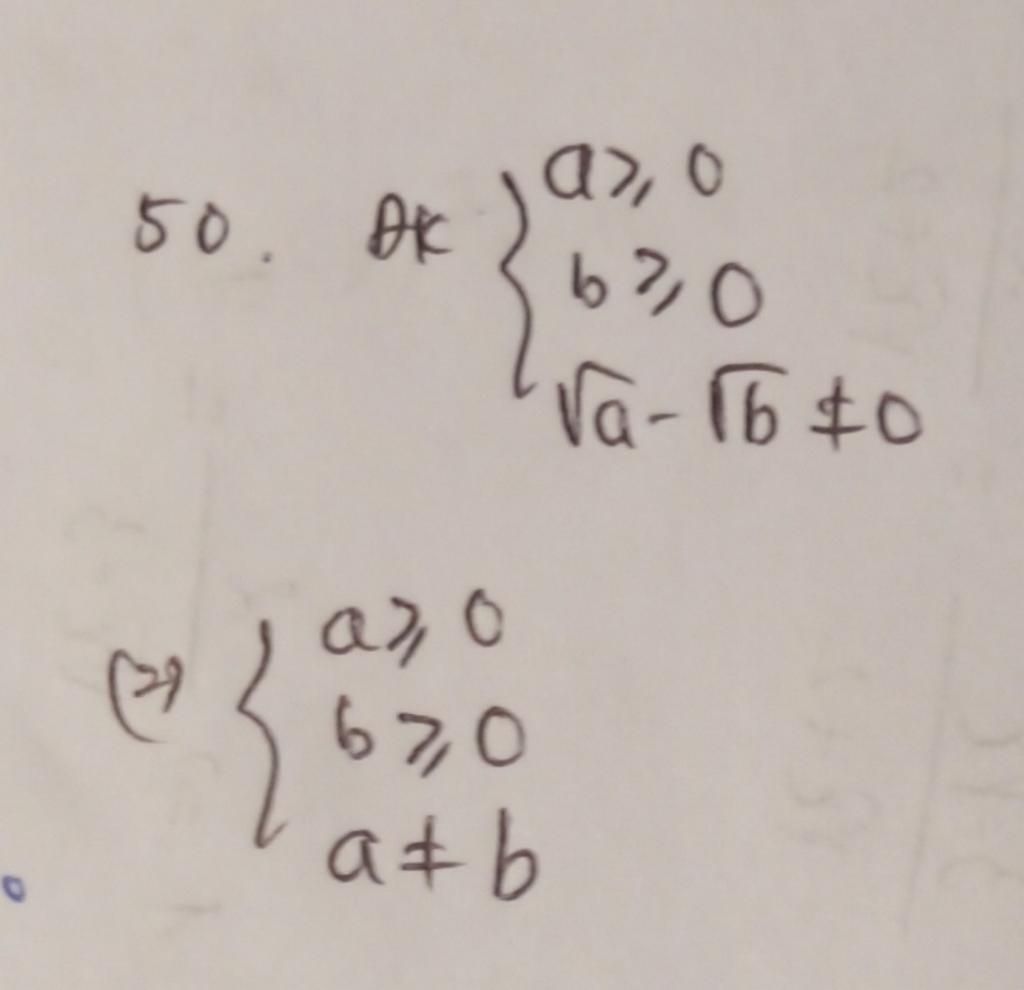 50. ĐK { a ⩾ 0
b ⩾ 0
√a - √b ≠ 0
(=) { a ⩾ 0
b ⩾ 0
a ≠ b